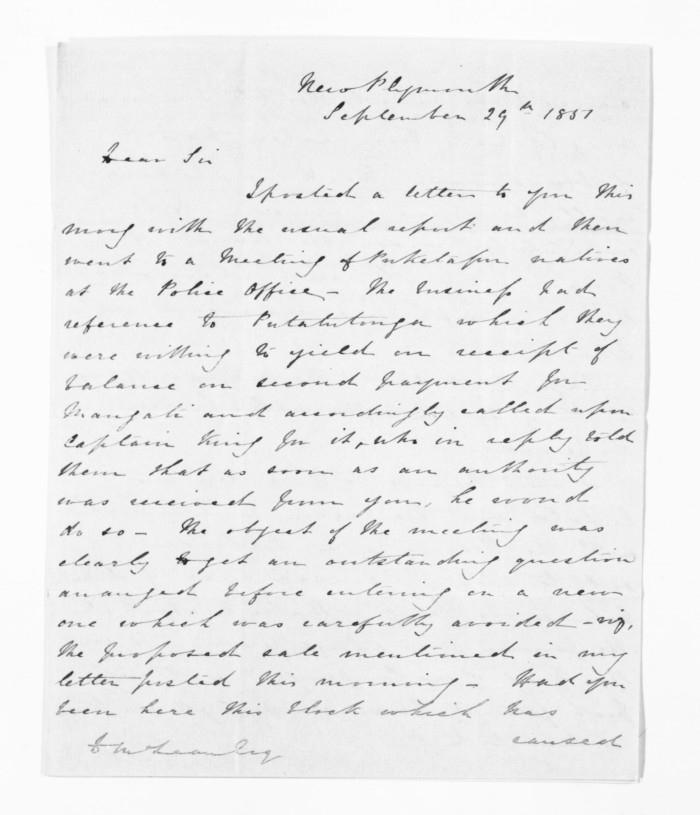 New Plymouth
September 29th 1851
Dear Sir
I posted a letter to you this
morng with the usual report and then
went to a Meeting of Puketapu natives
at the Police Office - The business had
reference to Putatutonga which they
were willing to yield on receipt of
balance on second payment for
Mangati and accordingly called upon
Captain King for it, who in reply told
them that as soon as an authority
was received from you, he would
do so - The object of the meeting was
clearly to get an outstanding question
arranged before entering on a new
one which was carefully avoided - viz,
the proposed sale mentioned in my
letter posted this morning - Had you
been here this block which has
caused
D McLean Esq